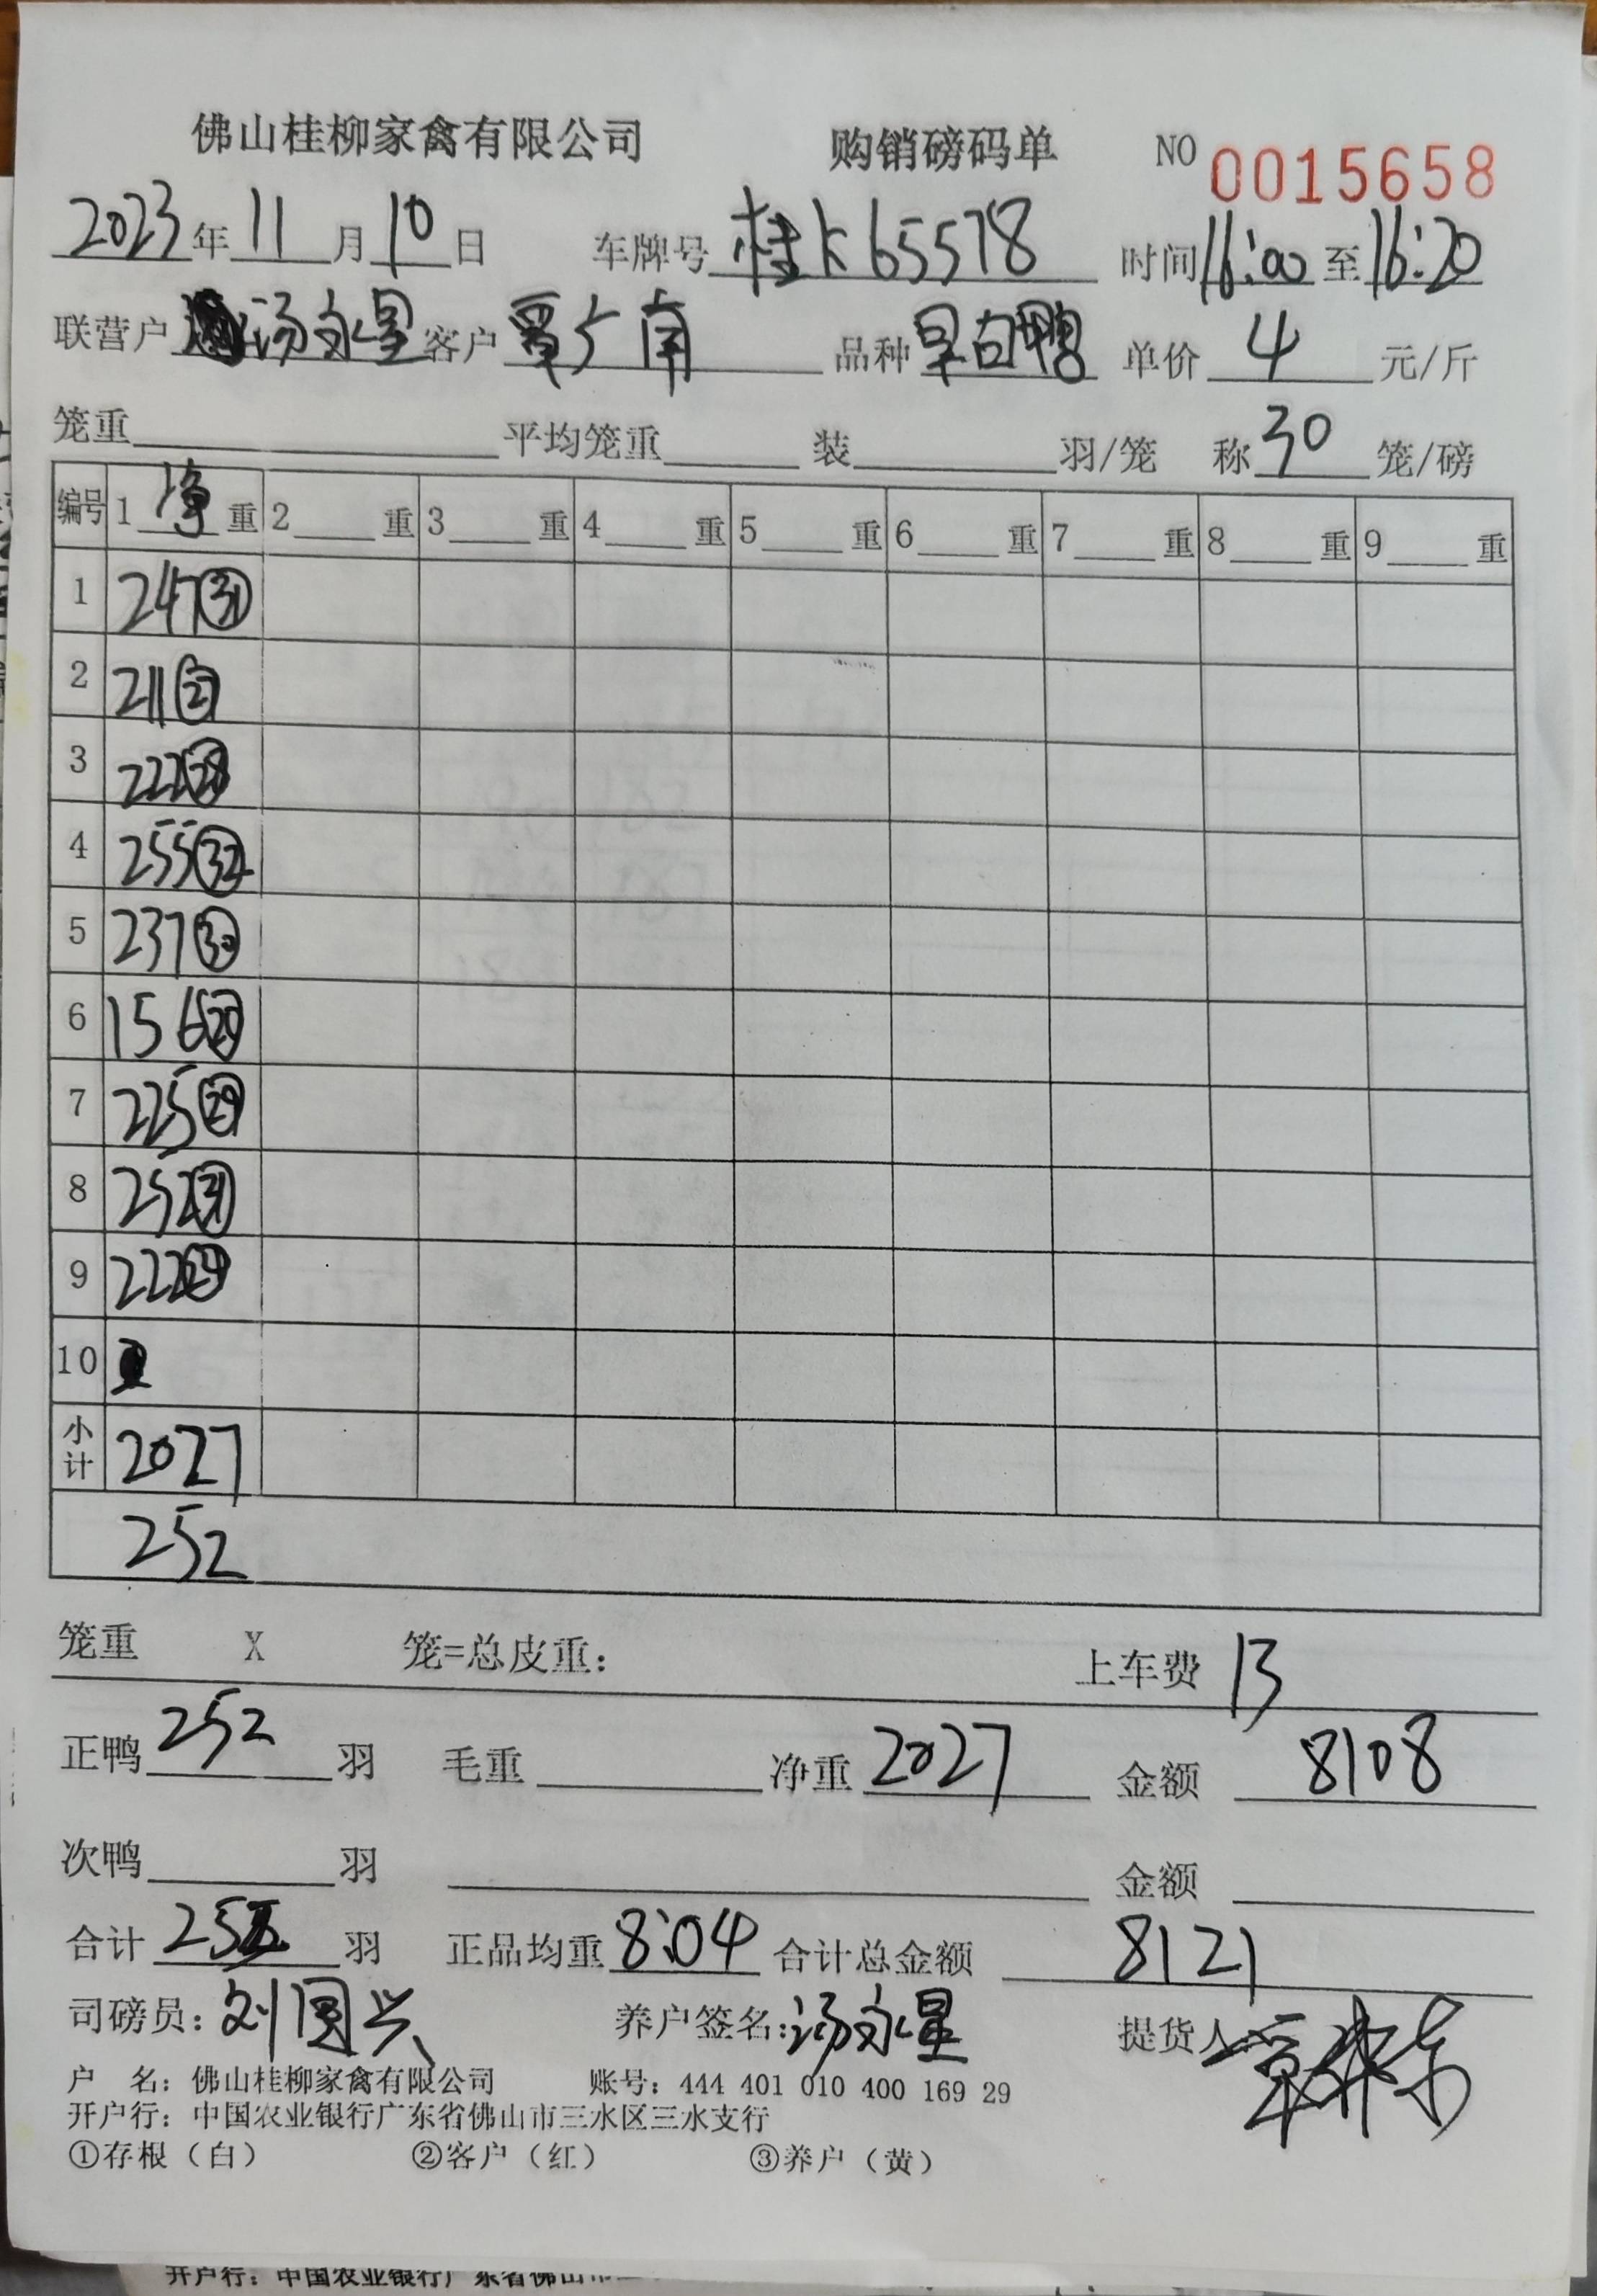 佛山桂柳家禽有限公司 购销磅码单 NO 0015658
2023年11月10日 车牌号 桂K65578 时间16:00至16:20
联营户 汤永星 客户 覃广南 品种 旱白鸭 单价 4 元/斤
笼重 平均笼重 装 羽/笼 称 30 笼/磅
编号 1 净 重 2 重 3 重 4 重 5 重 6 重 7 重 8 重 9 重
1 247 31
2 211 27
3 222 28
4 255 32
5 237 30
6 156 20
7 225 29
8 252 31
9 222 24
10
小计 2027
252
笼重 X 笼=总皮重: 上车费 13
正鸭 252 羽 毛重 净重 2027 金额 8108
次鸭 羽 金额
合计 252 羽 正品均重 8.04 合计总金额 8121
司磅员: 刘国兴 养户签名: 汤永星 提货人
户 名: 佛山桂柳家禽有限公司 账号: 444 401 010 400 169 29
开户行: 中国农业银行广东省佛山市三水区三水支行
①存根（白） ②客户（红） ③养户（黄）
开户行: 中国农业银行广东省佛山市